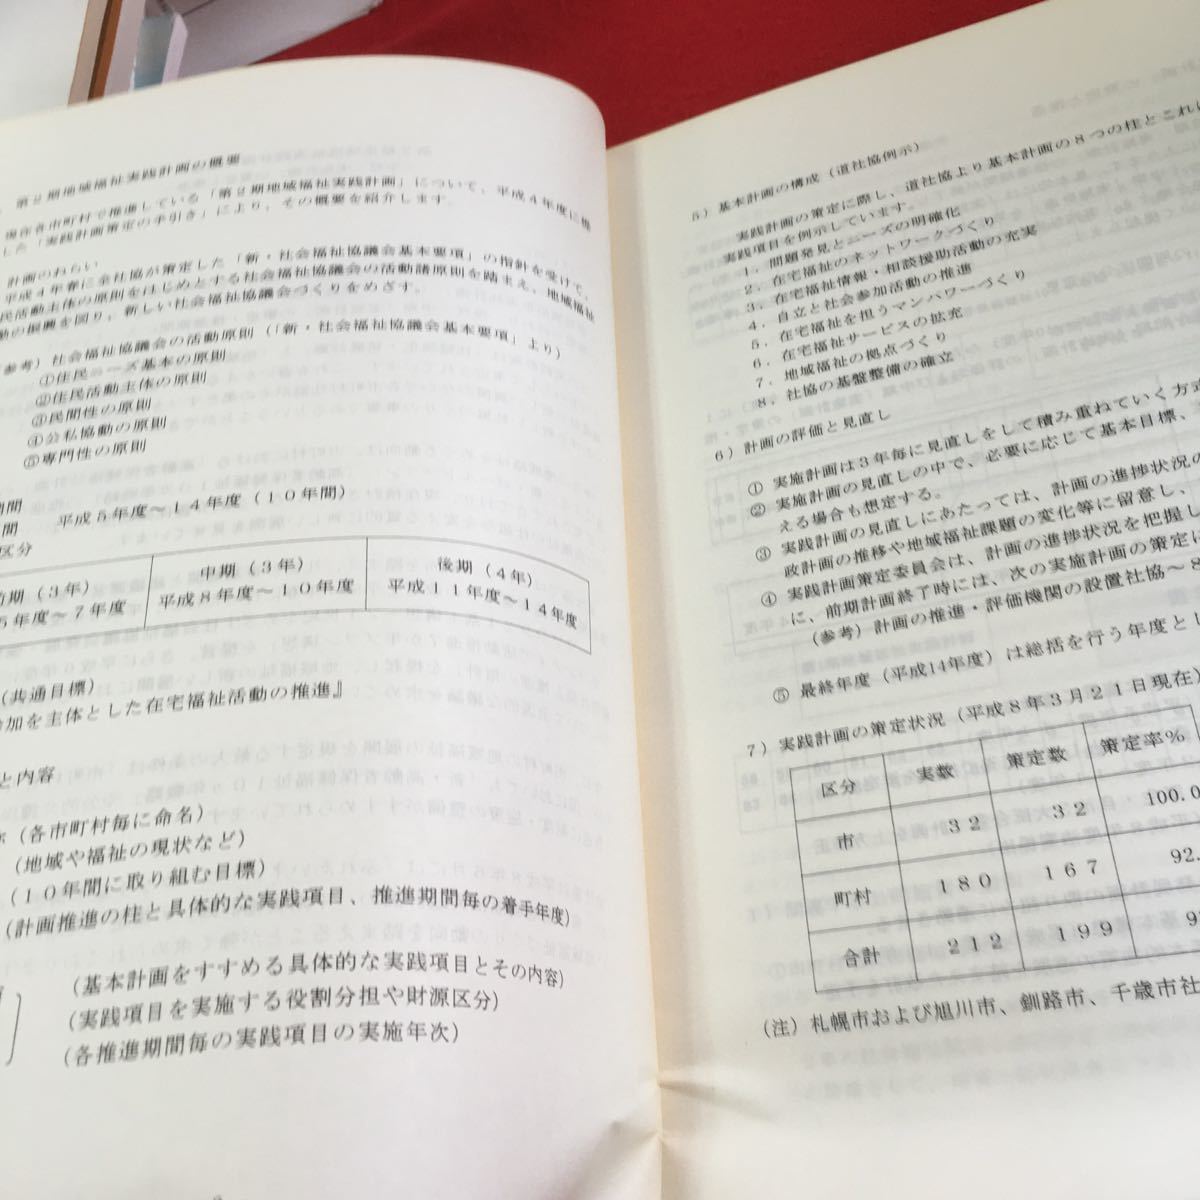 第２期地域福祉実践計画の概要
現在各市町村で推進している「第２期地域福祉実践計画」について、平成４年度に提
した「実践計画策定の手引き」により、その概要を紹介します。
計画のねらい
平成４年春に全社協が策定した「新・社会福祉協議会基本要項」の指針を受けて、
民活動主体の原則をはじめとする社会福祉協議会の活動諸原則を踏まえ、地域福祉
動の振興を図り、新しい社会福祉協議会づくりをめざす。
参考）社会福祉協議会の活動原則（「新・社会福祉協議会基本要項」より）
①住民ニーズ基本の原則
②住民活動主体の原則
③民間性の原則
④公私協働の原則
⑤専門性の原則
期間
間　平成５年度～１４年度（１０年間）
区分
前期（３年）　中期（３年）　後期（４年）
５年度～７年度　平成８年度～１０年度　平成１１年度～１４年度
（共通目標）
参加を主体とした在宅福祉活動の推進』
と内容
（各市町村毎に命名）
（地域や福祉の現状など）
（１０年間に取り組む目標）
（計画推進の柱と具体的な実践項目、推進期間毎の着手年度）
（基本計画をすすめる具体的な実践項目とその内容）
（実践項目を実施する役割分担や財源区分）
（各推進期間毎の実践項目の実施年次）
５）基本計画の構成（道社協例示）
実践計画の策定に際し、道社協より基本計画の８つの柱とこれに
実践項目を例示しています。
１．問題発見とニーズの明確化
２．在宅福祉のネットワークづくり
３．在宅福祉情報・相談援助活動の充実
４．自立と社会参加活動の推進
５．在宅福祉を担うマンパワーづくり
６．在宅福祉サービスの拡充
７．地域福祉の拠点づくり
８．社協の基盤整備の確立
６）計画の評価と見直し
① 実施計画は３年毎に見直しをして積み重ねていく方式
② 実施計画の見直しの中で、必要に応じて基本目標、
える場合も想定する。
③ 実践計画の見直しにあたっては、計画の進捗状況の
政計画の推移や地域福祉課題の変化等に留意し、
④ 実践計画策定委員会は、計画の進捗状況を把握し
に、前期計画終了時には、次の実施計画の策定に
（参考）計画の推進・評価機関の設置社協～８
⑤ 最終年度（平成14年度）は総括を行う年度とし
７）実践計画の策定状況（平成８年３月２１日現在）
区分　実数　策定数　策定率％
市　３２　３２　100.0
町村　１８０　１６７　92.
合計　２１２　１９９　9
（注）札幌市および旭川市、釧路市、千歳市社